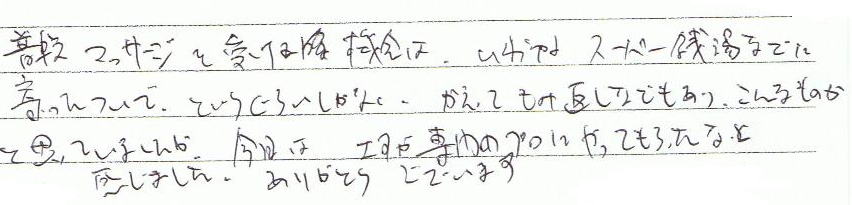 普段マッサージを受ける機会は、いわゆるスーパー銭湯などに
寄ったついで、というくらいしかなく、かえってもみ返しなどもあり、こんなものか
と思っていましたが、今回は さすが専門のプロにやってもらったなと
感じました。ありがとうございます